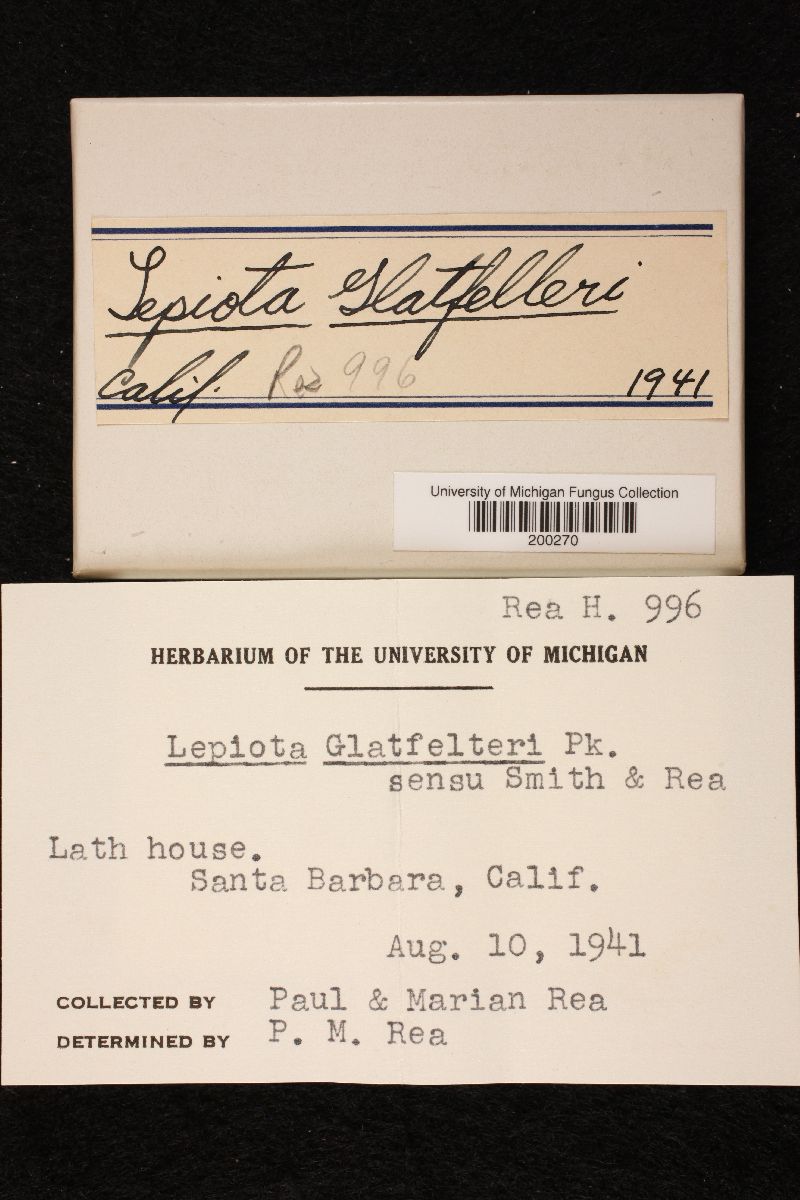 Lepiota Glatfelleri
Calif. Rea 996 1941
University of Michigan Fungus Collection
200270
Rea H. 996
HERBARIUM OF THE UNIVERSITY OF MICHIGAN
Lepiota Glatfelteri Pk.
sensu Smith & Rea
Lath house.
Santa Barbara, Calif.
Aug. 10, 1941
COLLECTED BY Paul & Marian Rea
DETERMINED BY P. M. Rea